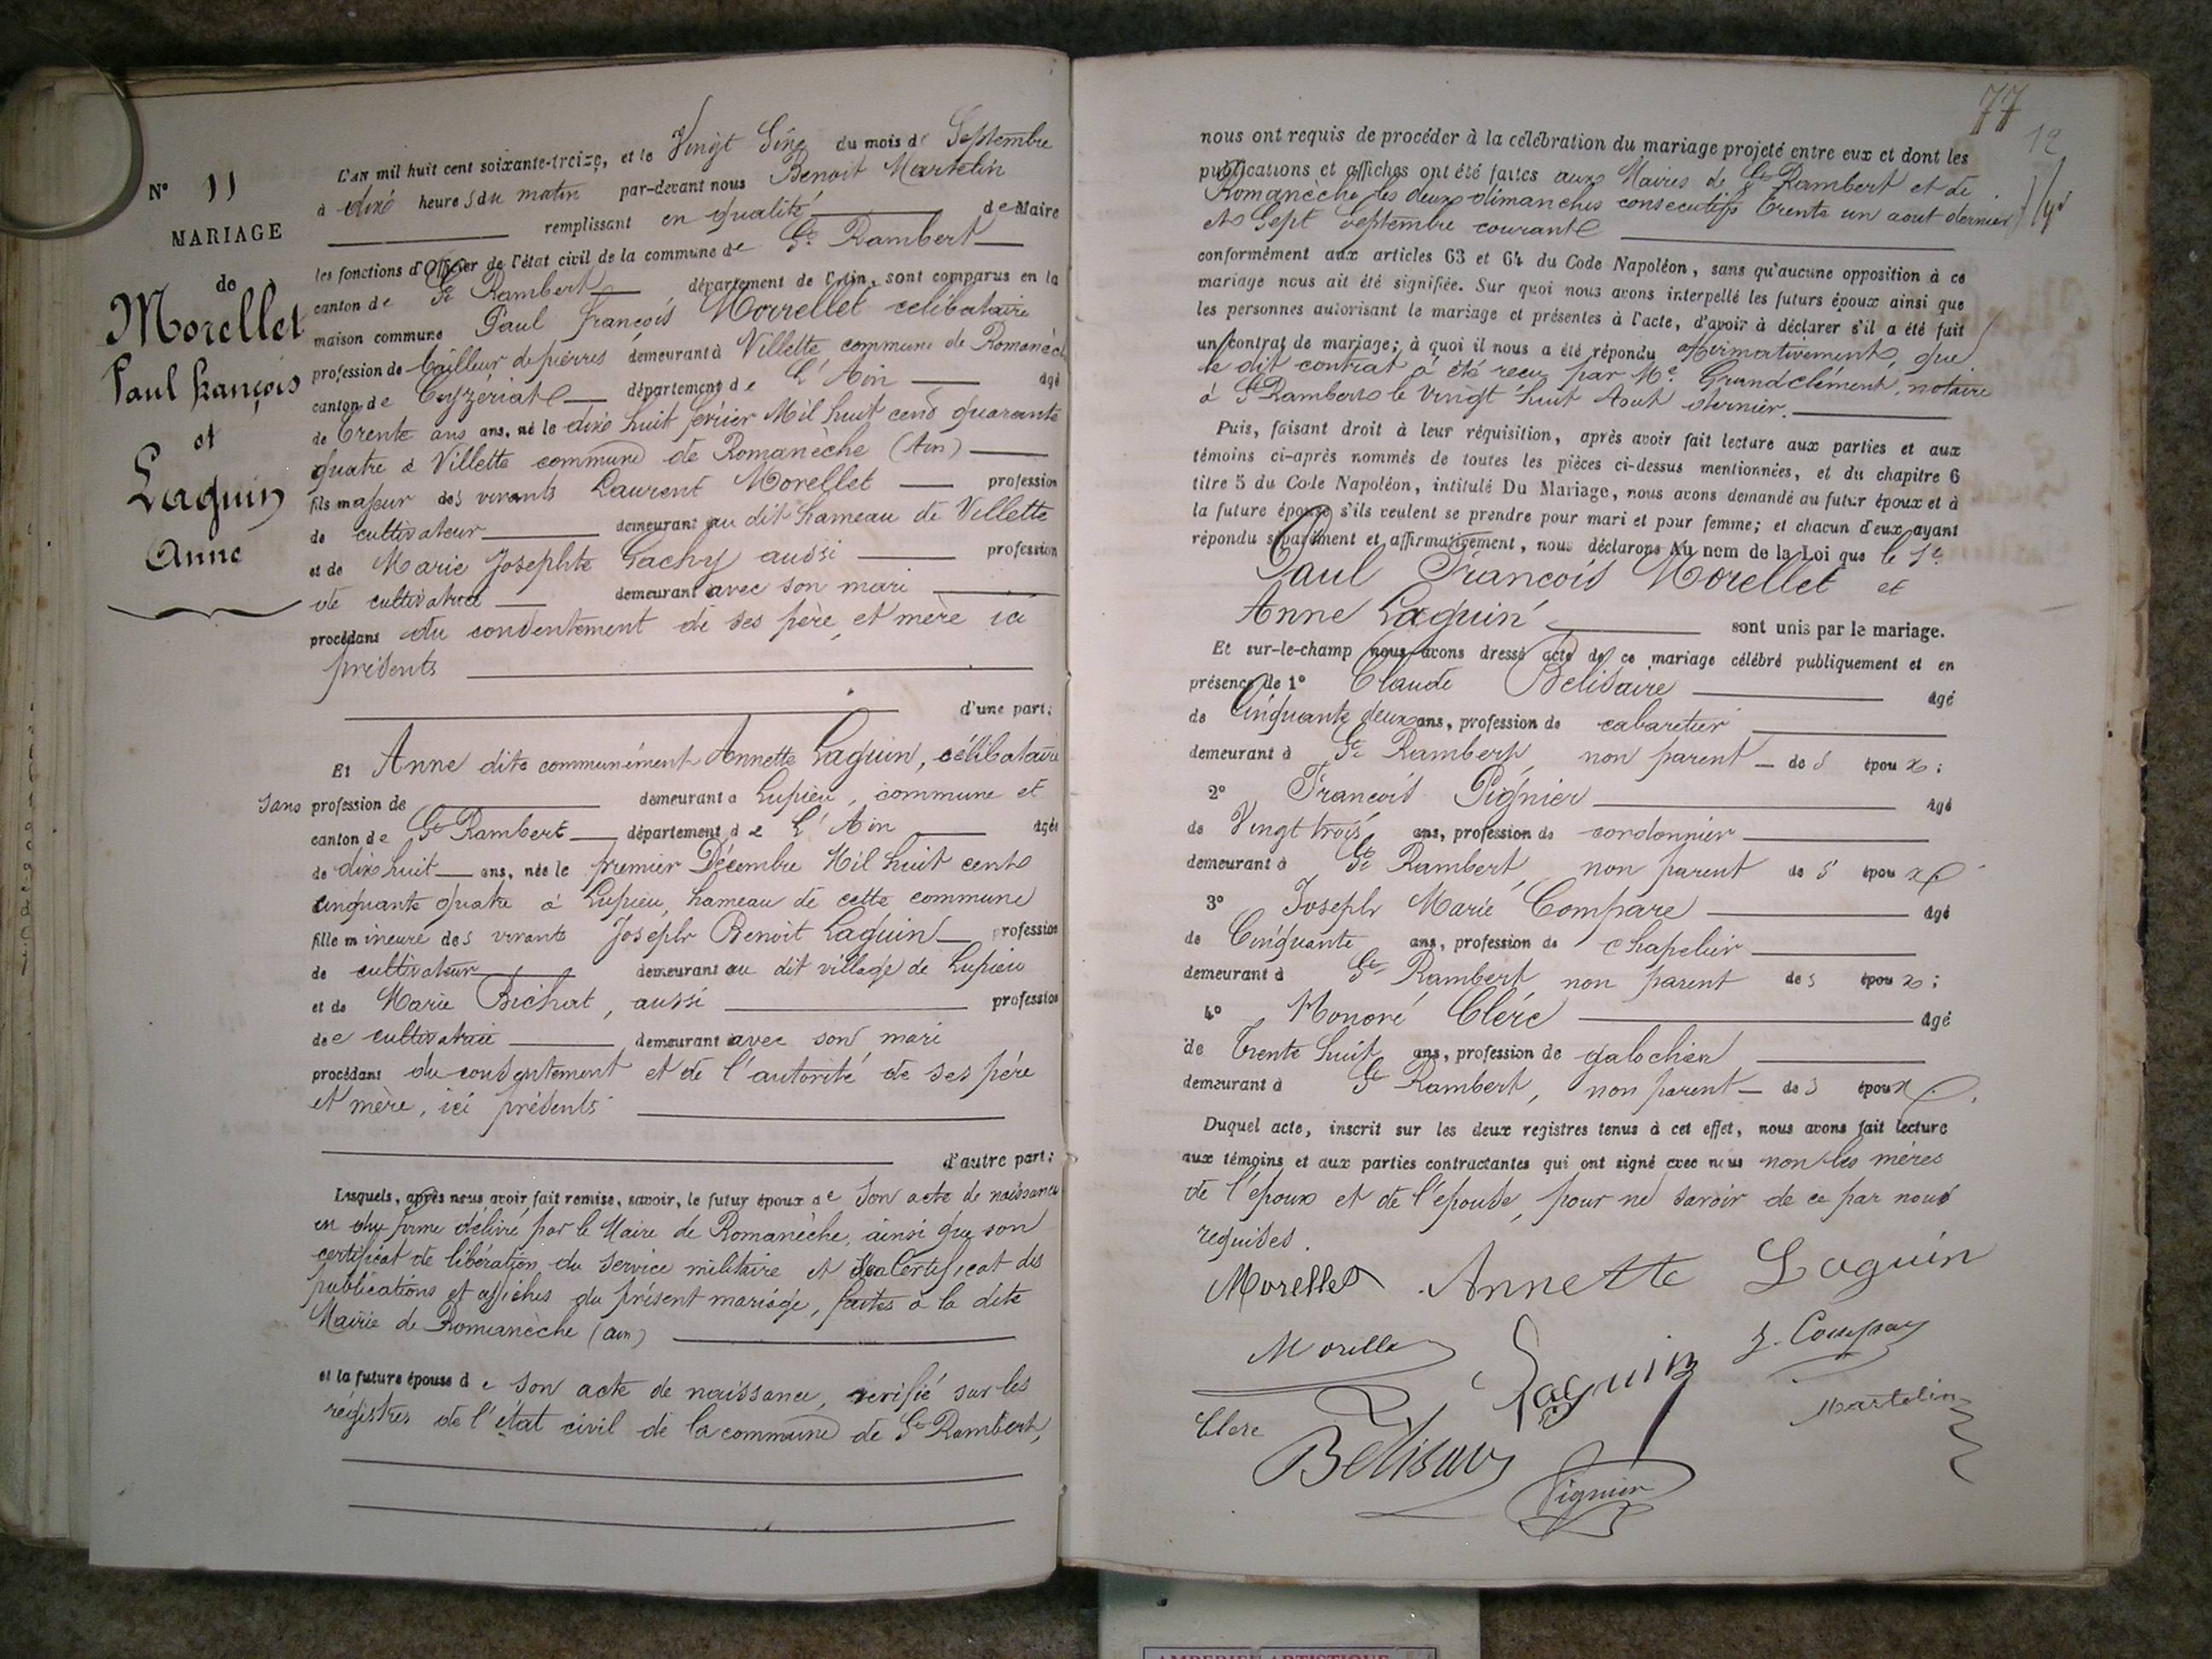 N° 11
MARIAGE
de
Morellet
Paul françois
et
Laguin
Anne
L'an mil huit cent soixante-treize, et le Vingt Cinq du mois de Septembre
à dix heures du matin par-devant nous Benoit Martelin
remplissant en qualité de Maire
les fonctions d'Officier de l'état civil de la commune de St Rambert
canton de St Rambert département de l'Ain, sont comparus en la
maison commune Paul françois Morrellet celibataire
profession de tailleur de pierres demeurant à Villette, commune de Romanèch
canton de Ceyzériat département de L'Ain âgé
de trente ans ans, né le dix huit février Mil huit cent quarante
quatre à Villette commune de Romanèche (Ain)
fils majeur des vivants Laurent Morellet profession
de cultivateur demeurant au dit hameau de Villette
et de Marie Josephte Gachy aussi profession
de cultivatrice demeurant avec son mari
procédant du consentement de ses père et mère ici
présents
d'une part;
Et Anne dite communément Annette Laguin, célibataire
sans profession de demeurant à Lupieu, commune et
canton de St Rambert département de L'Ain âgée
de dix huit ans, née le premier Décembre Mil huit cent
cinquante quatre à Lupieu, hameau de cette commune
fille mineure des vivants Joseph Benoit Laguin profession
de cultivateur demeurant au dit village de Lupieu
et de Marie Bichat, aussi profession
de cultivatrice demeurant avec son mari
procédant du consentement et de l'autorité de ses père
et mère, ici présents
d'autre part;
Lesquels, après nous avoir fait remise, savoir, le futur époux de son acte de naissance
en due forme délivré par le Maire de Romanèche, ainsi que son
certificat de libération du service militaire et certificat des
publications et affiches du présent mariage, faites à la dite
Mairie de Romanèche (ain)
et la future épouse de son acte de naissance, vérifié sur les
régistres de l'état civil de la commune de St Rambert,
77
12
nous ont requis de procéder à la célébration du mariage projeté entre eux et dont les
publications et affiches ont été faites aux Maires de St Rambert et de
Romanèche les deux dimanches consecutifs trente un aout dernier
et Sept Septembre courant
conformément aux articles 63 et 64 du Code Napoléon, sans qu'aucune opposition à ce
mariage nous ait été signifiée. Sur quoi nous avons interpellé les futurs époux ainsi que
les personnes autorisant le mariage et présentes à l'acte, d'avoir à déclarer s'il a été fait
un contrat de mariage; à quoi il nous a été répondu Affirmativement, que
le dit contrat a été reçu par Me Grandclément, notaire
à St Rambert le Vingt huit Aout dernier.
Puis, faisant droit à leur réquisition, après avoir fait lecture aux parties et aux
témoins ci-après nommés de toutes les pièces ci-dessus mentionnées, et du chapitre 6
titre 5 du Code Napoléon, intitulé Du Mariage, nous avons demandé au futur époux et à
la future épouse s'ils veulent se prendre pour mari et pour femme; et chacun d'eux ayant
répondu séparément et affirmativement, nous déclarons Au nom de la Loi que le Sr
Paul Francois Morellet et
Anne Laguin sont unis par le mariage.
Et sur-le-champ nous avons dressé acte de ce mariage célébré publiquement et en
présence de 1° Claude Belisaire âgé
de Cinquante deux ans, profession de cabaretier
demeurant à St Rambert non parent des époux;
2° Francois Pignier âgé
de Vingt trois ans, profession de cordonnier
demeurant à St Rambert, non parent des époux
3° Joseph Marie Compare âgé
de Cinquante ans, profession de chapelier
demeurant à St Rambert non parent des époux;
4° Honoré Clerc âgé
de Trente huit ans, profession de galochier
demeurant à St Rambert, non parent des époux.
Duquel acte, inscrit sur les deux registres tenus à cet effet, nous avons fait lecture
aux témoins et aux parties contractantes qui ont signé avec nous non les mères
de l'époux et de l'épouse, pour ne savoir de ce par nous
requises.
Morellet Annette Laguin
Morelle Laguin J. Compare
Clerc Martelin
Belisair Pignier